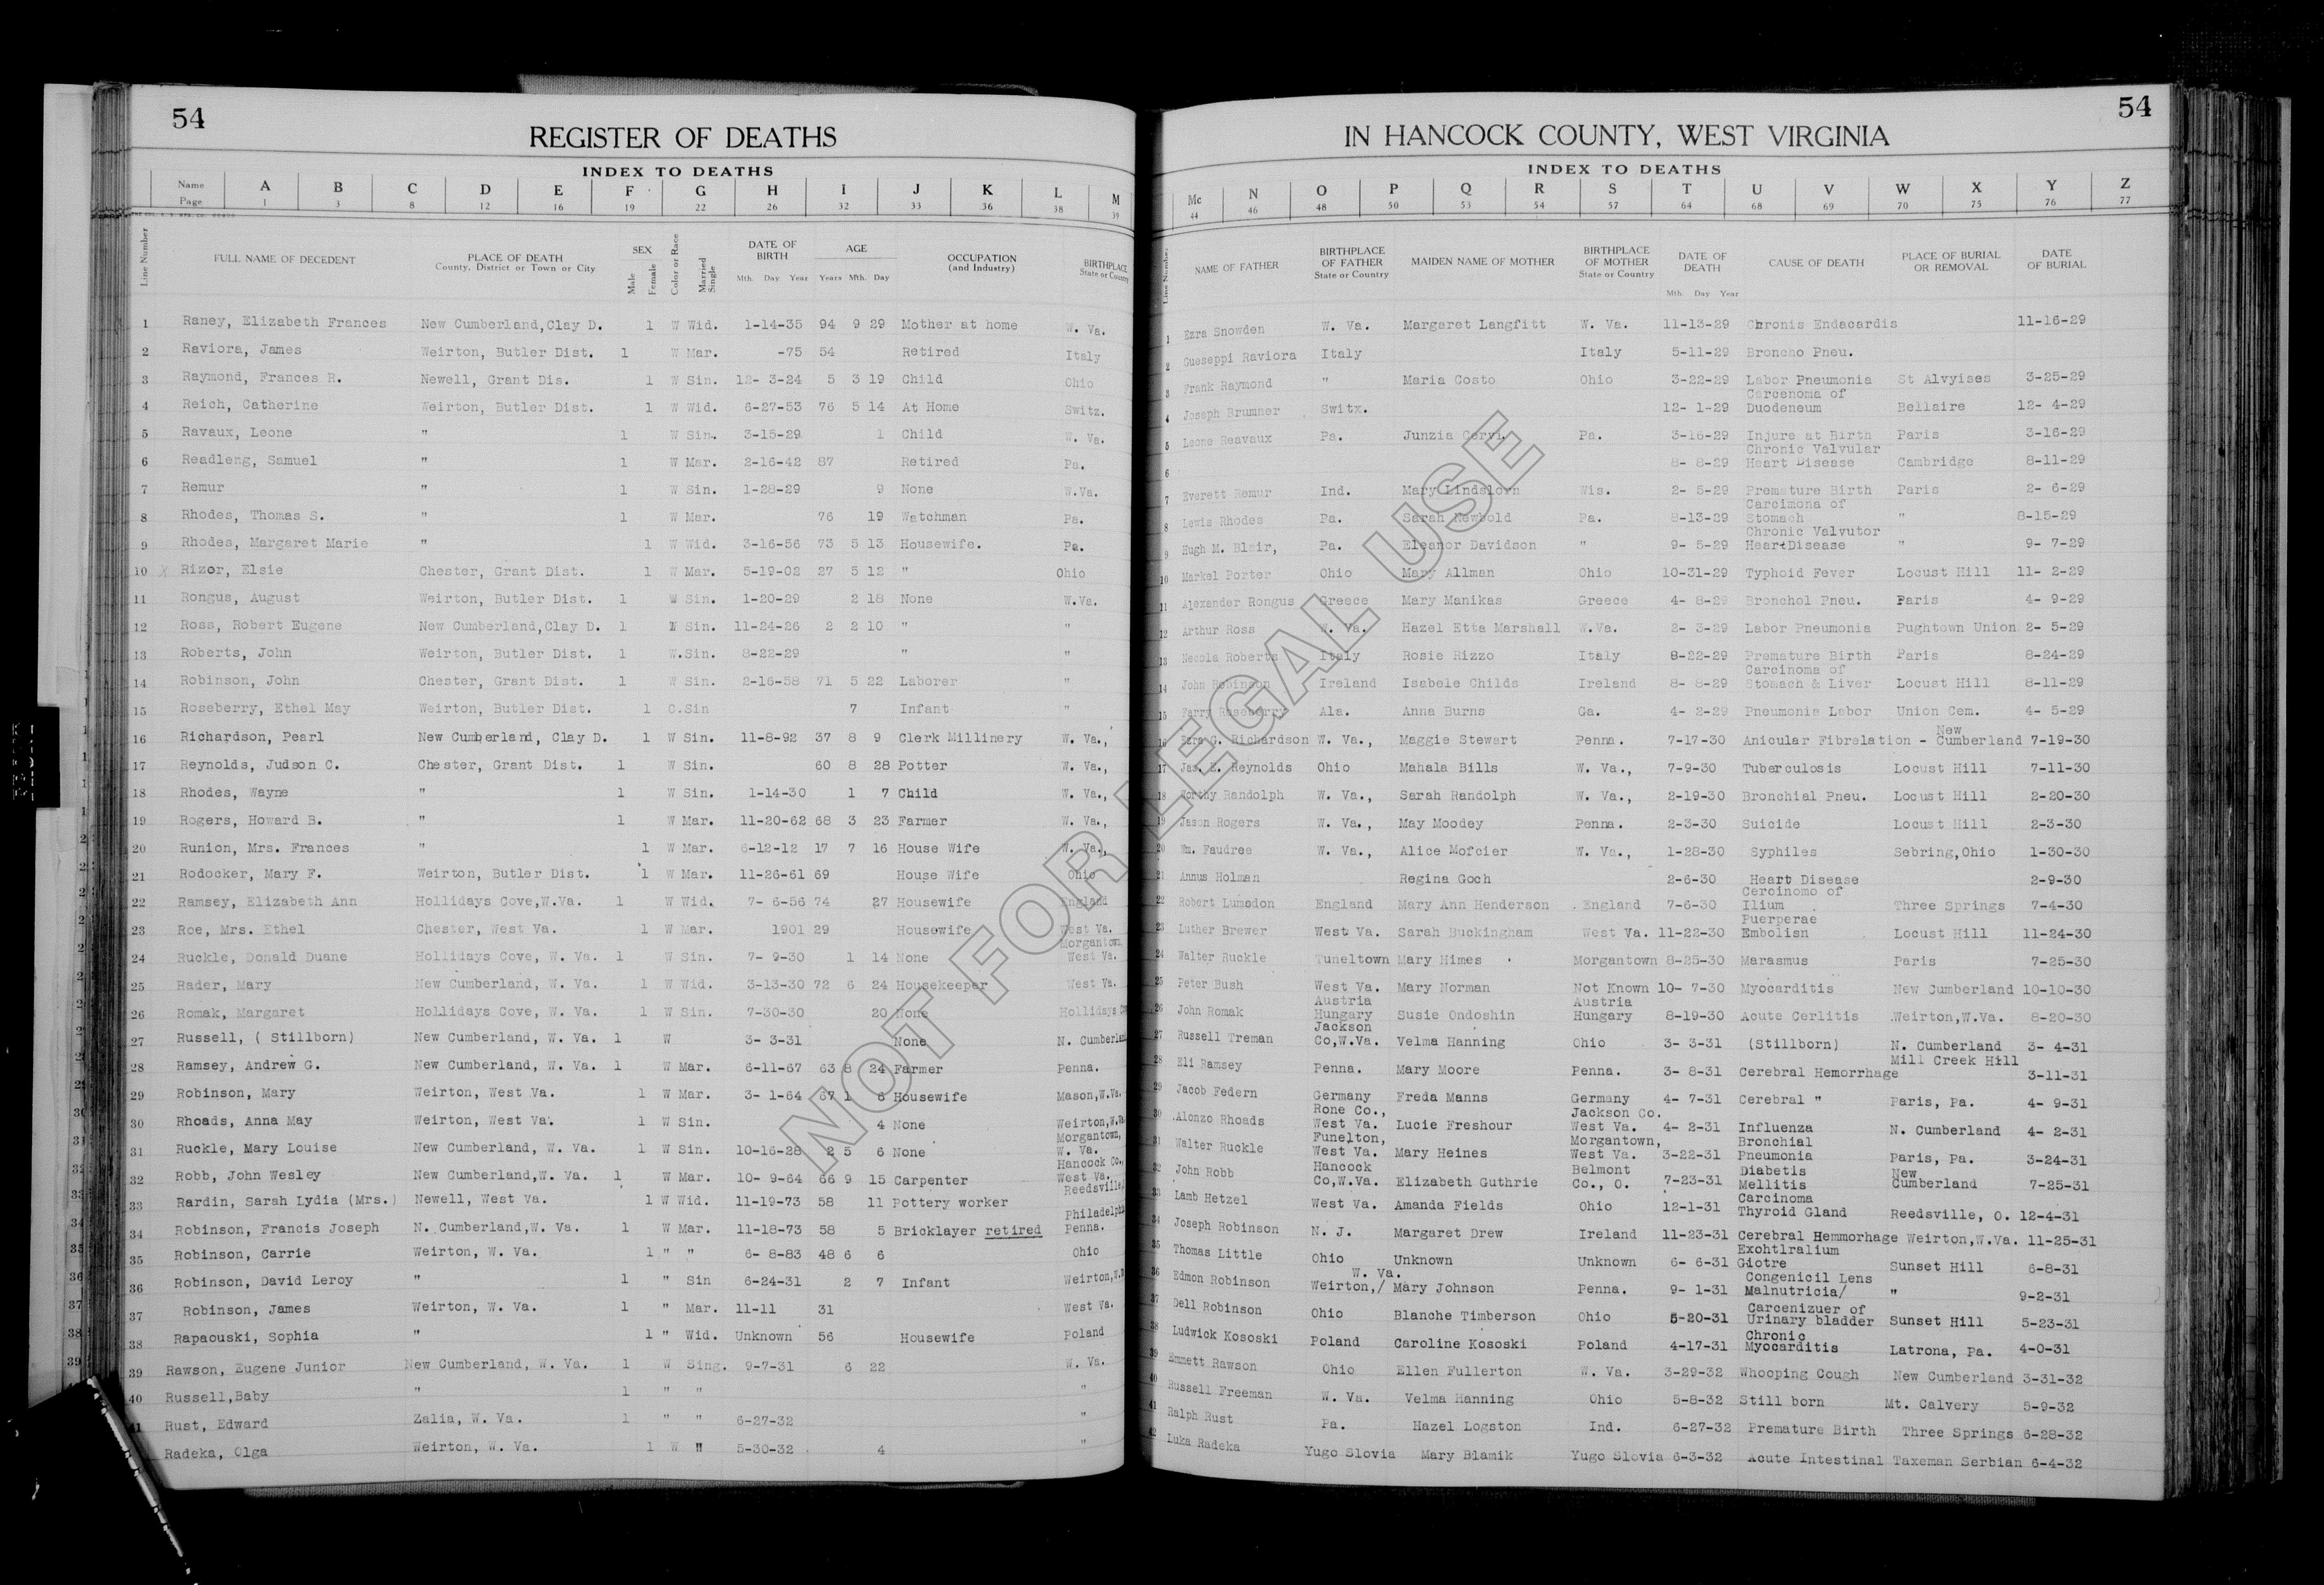 54
REGISTER OF DEATHS
INDEX TO DEATHS
Name A B C D E F G H I J K L M
Page 1 3 8 12 16 19 22 26 32 33 36 38 39
Line Number FULL NAME OF DECEDENT PLACE OF DEATH County, District or Town or City SEX Male Female Color or Race Married Single DATE OF BIRTH Mth. Day Year AGE Years Mth. Day OCCUPATION (and Industry) BIRTHPLACE State or Country
1 Raney, Elizabeth Frances New Cumberland,Clay D. 1 W Wid. 1-14-35 94 9 29 Mother at home W. Va.
2 Raviora, James Weirton, Butler Dist. 1 W Mar. -75 54 Retired Italy
3 Raymond, Frances R. Newell, Grant Dis. 1 W Sin. 12- 3-24 5 3 19 Child Ohio
4 Reich, Catherine Weirton, Butler Dist. 1 W Wid. 6-27-53 76 5 14 At Home Switz.
5 Ravaux, Leone " 1 W Sin. 3-15-29 1 Child W. Va.
6 Readleng, Samuel " 1 W Mar. 2-16-42 87 Retired Pa.
7 Remur " 1 W Sin. 1-28-29 9 None W.Va.
8 Rhodes, Thomas S. " 1 W Mar. 76 19 Watchman Pa.
9 Rhodes, Margaret Marie " 1 W Wid. 3-16-56 73 5 13 Housewife. Pa.
10 Rizor, Elsie Chester, Grant Dist. 1 W Mar. 5-19-02 27 5 12 " Ohio
11 Rongus, August Weirton, Butler Dist. 1 W Sin. 1-20-29 2 18 None W.Va.
12 Ross, Robert Eugene New Cumberland,Clay D. 1 W Sin. 11-24-26 2 2 10 " "
13 Roberts, John Weirton, Butler Dist. 1 W.Sin. 8-22-29 " "
14 Robinson, John Chester, Grant Dist. 1 W Sin. 2-16-58 71 5 22 Laborer "
15 Roseberry, Ethel May Weirton, Butler Dist. 1 C.Sin 7 Infant "
16 Richardson, Pearl New Cumberland, Clay D. 1 W Sin. 11-8-92 37 8 9 Clerk Millinery W. Va.,
17 Reynolds, Judson C. Chester, Grant Dist. 1 W Sin. 60 8 28 Potter W. Va.,
18 Rhodes, Wayne " 1 W Sin. 1-14-30 1 7 Child W. Va.,
19 Rogers, Howard B. " 1 W Mar. 11-20-62 68 3 23 Farmer W. Va.,
20 Runion, Mrs. Frances " 1 W Mar. 6-12-12 17 7 16 House Wife W. Va.,
21 Rodocker, Mary F. Weirton, Butler Dist. 1 W Mar. 11-26-61 69 House Wife Ohio
22 Ramsey, Elizabeth Ann Hollidays Cove,W.Va. 1 W Wid. 7- 6-56 74 27 Housewife England
23 Roe, Mrs. Ethel Chester, West Va. 1 W Mar. 1901 29 Housewife West Va.
24 Ruckle, Donald Duane Hollidays Cove, W. Va. 1 W Sin. 7- 9-30 1 14 None Morgantown, West Va.
25 Rader, Mary New Cumberland, W. Va. 1 W Wid. 3-13-30 72 6 24 Housekeeper West Va.
26 Romak, Margaret Hollidays Cove, W. Va. 1 W Sin. 7-30-30 20 None Hollidays
27 Russell, ( Stillborn) New Cumberland, W. Va. 1 W 3- 3-31 None N. Cumberland
28 Ramsey, Andrew G. New Cumberland, W. Va. 1 W Mar. 6-11-67 63 8 24 Farmer Penna.
29 Robinson, Mary Weirton, West Va. 1 W Mar. 3- 1-64 67 1 6 Housewife Mason,W.Va.
30 Rhoads, Anna May Weirton, West Va. 1 W Sin. 4 None Weirton,W.Va
31 Ruckle, Mary Louise New Cumberland, W. Va. 1 W Sin. 10-16-28 2 5 6 None Morgantown, W. Va.
32 Robb, John Wesley New Cumberland,W. Va. 1 W Mar. 10- 9-64 66 9 15 Carpenter Hancock Co., West Va.
33 Rardin, Sarah Lydia (Mrs.) Newell, West Va. 1 W Wid. 11-19-73 58 11 Pottery worker Reedsville,
34 Robinson, Francis Joseph N. Cumberland,W. Va. 1 W Mar. 11-18-73 58 5 Bricklayer retired Philadelphia Penna.
35 Robinson, Carrie Weirton, W. Va. 1 " " 6- 8-83 48 6 6 Ohio
36 Robinson, David Leroy " 1 " Sin 6-24-31 2 7 Infant Weirton,W.
37 Robinson, James Weirton, W. Va. 1 " Mar. 11-11 31 West Va.
38 Rapaouski, Sophia " 1 " Wid. Unknown 56 Housewife Poland
39 Rawson, Eugene Junior New Cumberland, W. Va. 1 W Sing. 9-7-31 6 22 W. Va.
40 Russell,Baby " 1 " " "
41 Rust, Edward Zalia, W. Va. 1 " " 6-27-32 "
Radeka, Olga Weirton, W. Va. 1 W " 5-30-32 4 "
54
IN HANCOCK COUNTY, WEST VIRGINIA
INDEX TO DEATHS
Mc N O P Q R S T U V W X Y Z
44 46 48 50 53 54 57 64 68 69 70 75 76 77
Line Number NAME OF FATHER BIRTHPLACE OF FATHER State or Country MAIDEN NAME OF MOTHER BIRTHPLACE OF MOTHER State or Country DATE OF DEATH Mth. Day Year CAUSE OF DEATH PLACE OF BURIAL OR REMOVAL DATE OF BURIAL
1 Ezra Snowden W. Va. Margaret Langfitt W. Va. 11-13-29 Chronis Endacardis 11-16-29
2 Gueseppi Raviora Italy Italy 5-11-29 Broncho Pneu.
3 Frank Raymond " Maria Costo Ohio 3-22-29 Labor Pneumonia St Alvyises 3-25-29
4 Joseph Brumner Switx. 12- 1-29 Carcenoma of Duodeneum Bellaire 12- 4-29
5 Leone Reavaux Pa. Junzia Corvi Pa. 3-16-29 Injure at Birth Paris 3-16-29
6 8- 8-29 Chronic Valvular Heart Disease Cambridge 8-11-29
7 Everett Remur Ind. Mary Lindslorn Wis. 2- 5-29 Premature Birth Paris 2- 6-29
8 Lewis Rhodes Pa. Sarah Newbold Pa. 8-13-29 Carcimona of Stomach " 8-15-29
9 Hugh M. Blair, Pa. Eleanor Davidson " 9- 5-29 Chronic Valvutor Heart Disease " 9- 7-29
10 Markel Porter Ohio Mary Allman Ohio 10-31-29 Typhoid Fever Locust Hill 11- 2-29
11 Alexander Rongus Greece Mary Manikas Greece 4- 8-29 Bronchol Pneu. Paris 4- 9-29
12 Arthur Ross W. Va. Hazel Etta Marshall W.Va. 2- 3-29 Labor Pneumonia Pughtown Union 2- 5-29
13 Necola Roberts Italy Rosie Rizzo Italy 8-22-29 Premature Birth Paris 8-24-29
14 John Robinson Ireland Isabele Childs Ireland 8- 8-29 Carcinoma of Stomach & Liver Locust Hill 8-11-29
15 Farry Roseberry Ala. Anna Burns Ga. 4- 2-29 Pneumonia Labor Union Cem. 4- 5-29
16 Ezra G. Richardson W. Va., Maggie Stewart Penna. 7-17-30 Anicular Fibrelation - New Cumberland 7-19-30
17 Jas. E. Reynolds Ohio Mahala Bills W. Va., 7-9-30 Tuberculosis Locust Hill 7-11-30
18 Worthy Randolph W. Va., Sarah Randolph W. Va., 2-19-30 Bronchial Pneu. Locust Hill 2-20-30
19 Jason Rogers W. Va., May Moodey Penna. 2-3-30 Suicide Locust Hill 2-3-30
20 Wm. Faudree W. Va., Alice Mofcier W. Va., 1-28-30 Syphiles Sebring,Ohio 1-30-30
21 Annus Holman Regina Goch 2-6-30 Heart Disease 2-9-30
22 Robert Lumsdon England Mary Ann Henderson England 7-6-30 Cercinomo of Ilium Three Springs 7-4-30
23 Luther Brewer West Va. Sarah Buckingham West Va. 11-22-30 Puerperae Embolism Locust Hill 11-24-30
24 Walter Ruckle Tuneltown Mary Himes Morgantown 8-25-30 Marasmus Paris 7-25-30
25 Peter Bush West Va. Mary Norman Not Known 10- 7-30 Myocarditis New Cumberland 10-10-30
26 John Romak Austria Hungary Susie Ondoshin Austria Hungary 8-19-30 Acute Cerlitis Weirton,W.Va. 8-20-30
27 Russell Treman Jackson Co,W.Va. Velma Hanning Ohio 3- 3-31 (Stillborn) N. Cumberland 3- 4-31
28 Eli Ramsey Penna. Mary Moore Penna. 3- 8-31 Cerebral Hemorrhage Mill Creek Hill 3-11-31
29 Jacob Federn Germany Freda Manns Germany 4- 7-31 Cerebral " Paris, Pa. 4- 9-31
30 Alonzo Rhoads Rone Co., West Va. Lucie Freshour Jackson Co. West Va. 4- 2-31 Influenza N. Cumberland 4- 2-31
31 Walter Ruckle Funelton, West Va. Mary Heines Morgantown, West Va. 3-22-31 Bronchial Pneumonia Paris, Pa. 3-24-31
32 John Robb Hancock Co,W.Va. Elizabeth Guthrie Belmont Co., O. 7-23-31 Diabetis Mellitis New Cumberland 7-25-31
33 Lamb Hetzel West Va. Amanda Fields Ohio 12-1-31 Carcinoma Thyroid Gland Reedsville, O. 12-4-31
34 Joseph Robinson N. J. Margaret Drew Ireland 11-23-31 Cerebral Hemmorhage Weirton,W.Va. 11-25-31
35 Thomas Little Ohio Unknown Unknown 6- 6-31 Exohtlralium Giotre Sunset Hill 6-8-31
36 Edmon Robinson W. Va. Weirton,/ Mary Johnson Penna. 9- 1-31 Congenicil Lens Malnutricia/ " 9-2-31
37 Dell Robinson Ohio Blanche Timberson Ohio 5-20-31 Carcenizuer of Urinary bladder Sunset Hill 5-23-31
38 Ludwick Kososki Poland Caroline Kososki Poland 4-17-31 Chronic Myocarditis Latrona, Pa. 4-0-31
39 Emmett Rawson Ohio Ellen Fullerton W. Va. 3-29-32 Whooping Cough New Cumberland 3-31-32
40 Russell Freeman W. Va. Velma Hanning Ohio 5-8-32 Still born Mt. Calvery 5-9-32
41 Ralph Rust Pa. Hazel Logston Ind. 6-27-32 Premature Birth Three Springs 6-28-32
42 Luka Radeka Yugo Slovia Mary Blamik Yugo Slovia 6-3-32 Acute Intestinal Taxeman Serbian 6-4-32
NOT FOR LEGAL USE